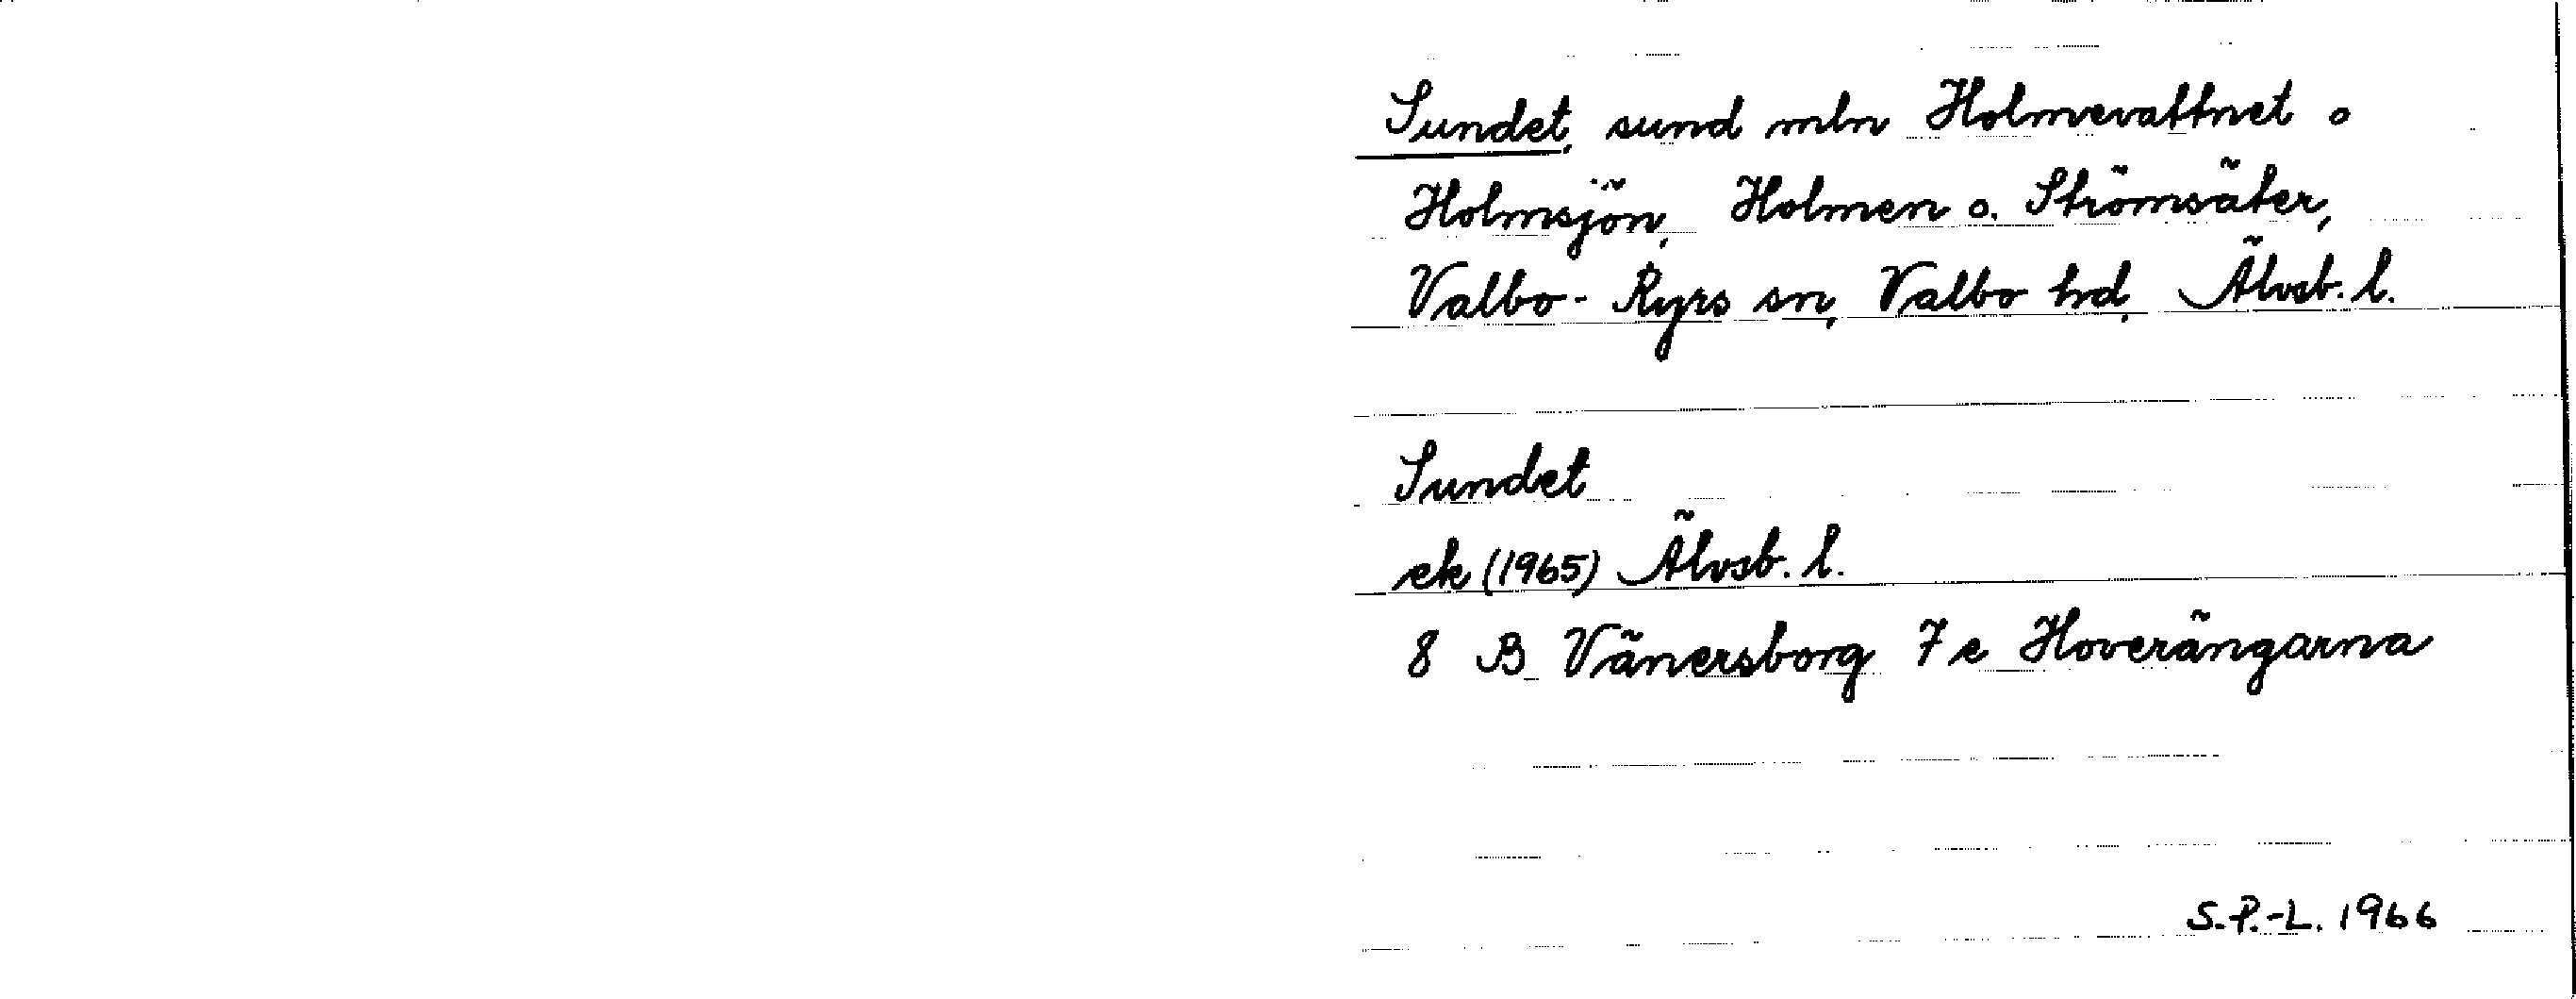 Sundet, sund mln Holmevattnet o
Holmsjön, Holmen o. Strömsäter,
Valbo-Ryrs sn, Valbo hd, Älvsb. l.
Sundet
ek (1965) Älvsb. l.
8 B Vänersborg 7 e Hoverängarna
S.P.-L. 1966